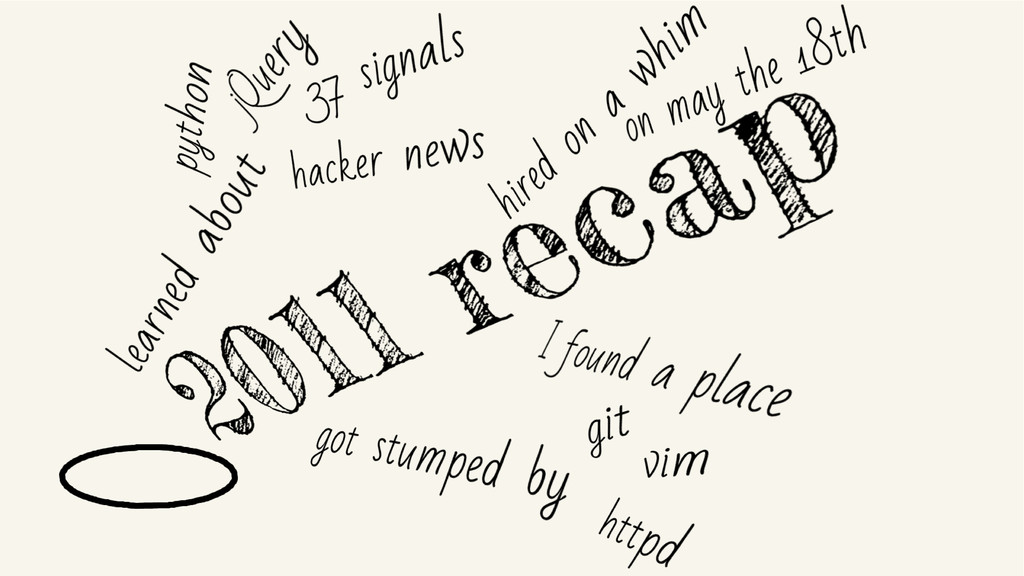 python
jQuery
37 signals
hacker news
learned about
hired on a whim
on may the 18th
2011 recap
I found a place
got stumped by
git
vim
httpd